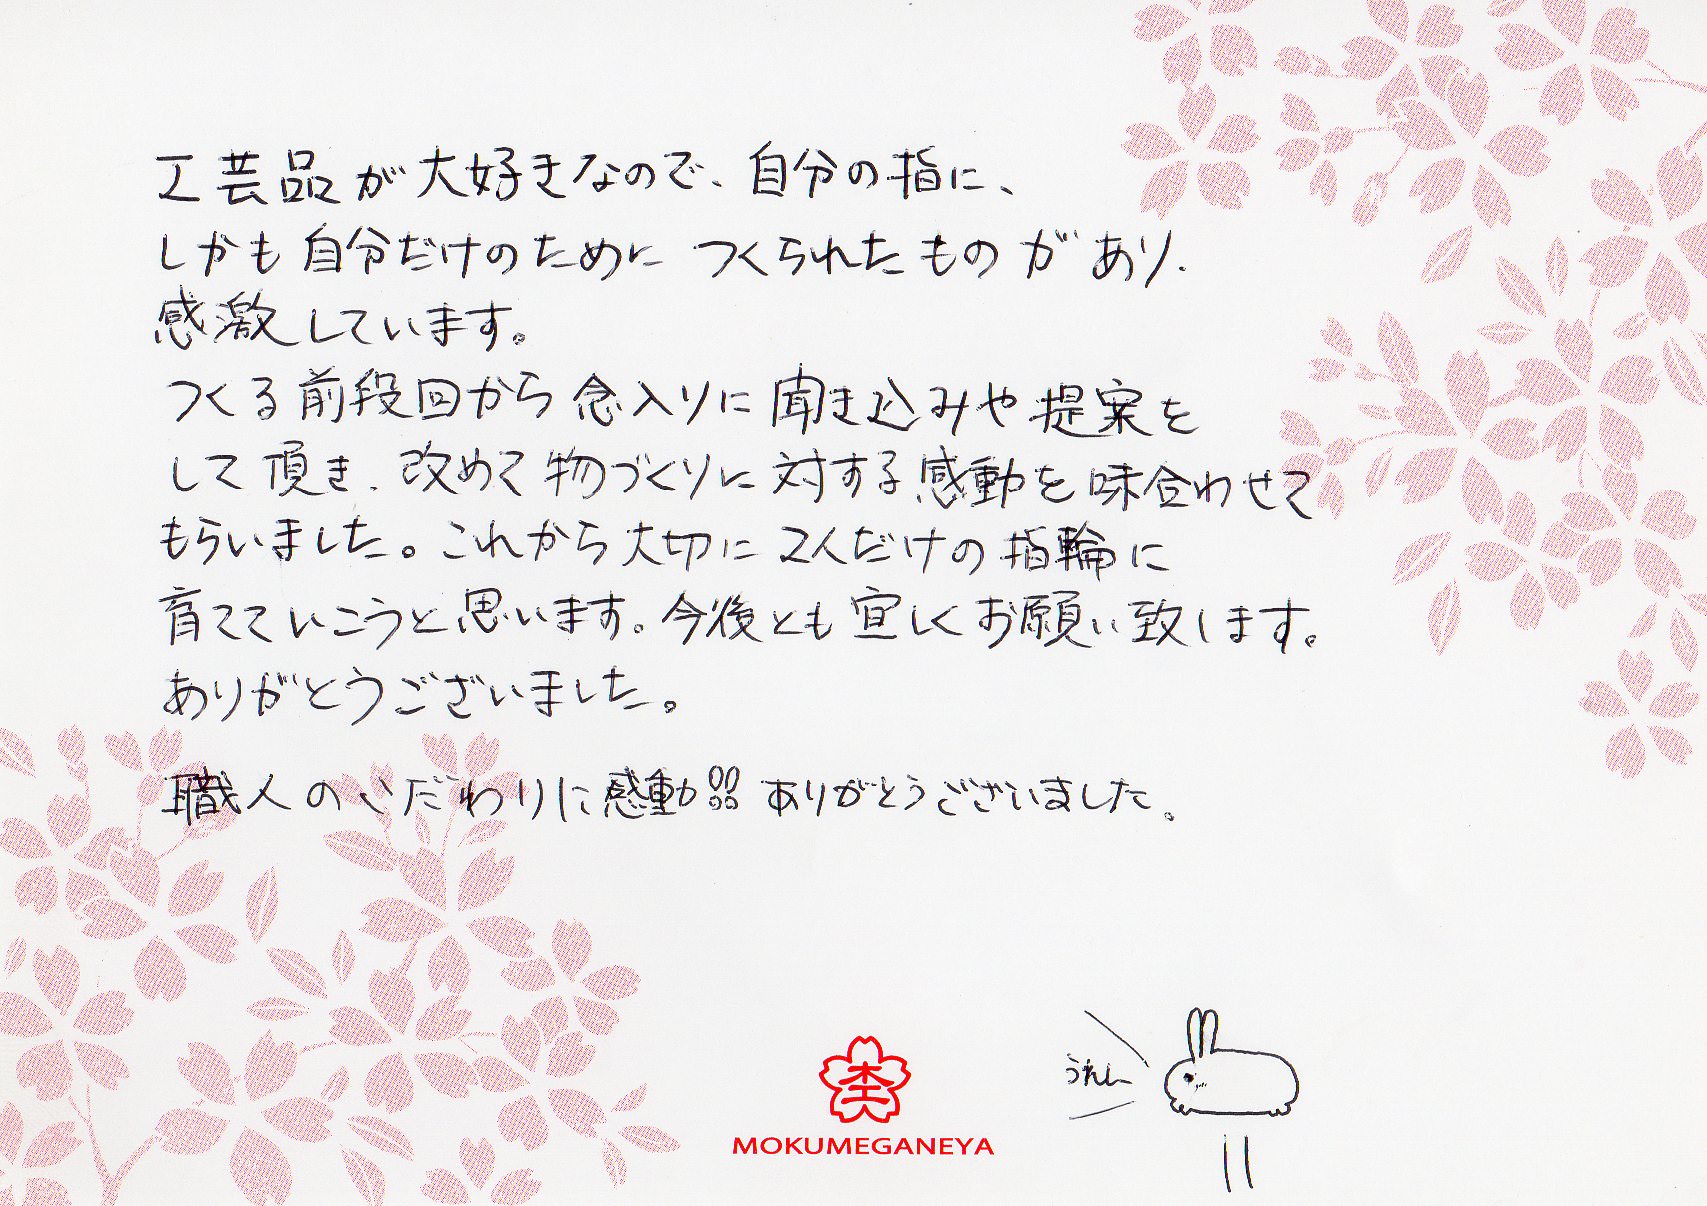 工芸品が大好きなので、自分の指に、
しかも自分だけのためにつくられたものがあり、
感激しています。
つくる前段回から念入りに聞き込みや提案を
して頂き、改めて物づくりに対する感動を味合わせて
もらいました。これから大切に2人だけの指輪に
育てていこうと思います。今後とも宜しくお願い致します。
ありがとうございました。
職人のこだわりに感動!!ありがとうございました。
うれしー
MOKUMEGANEYA